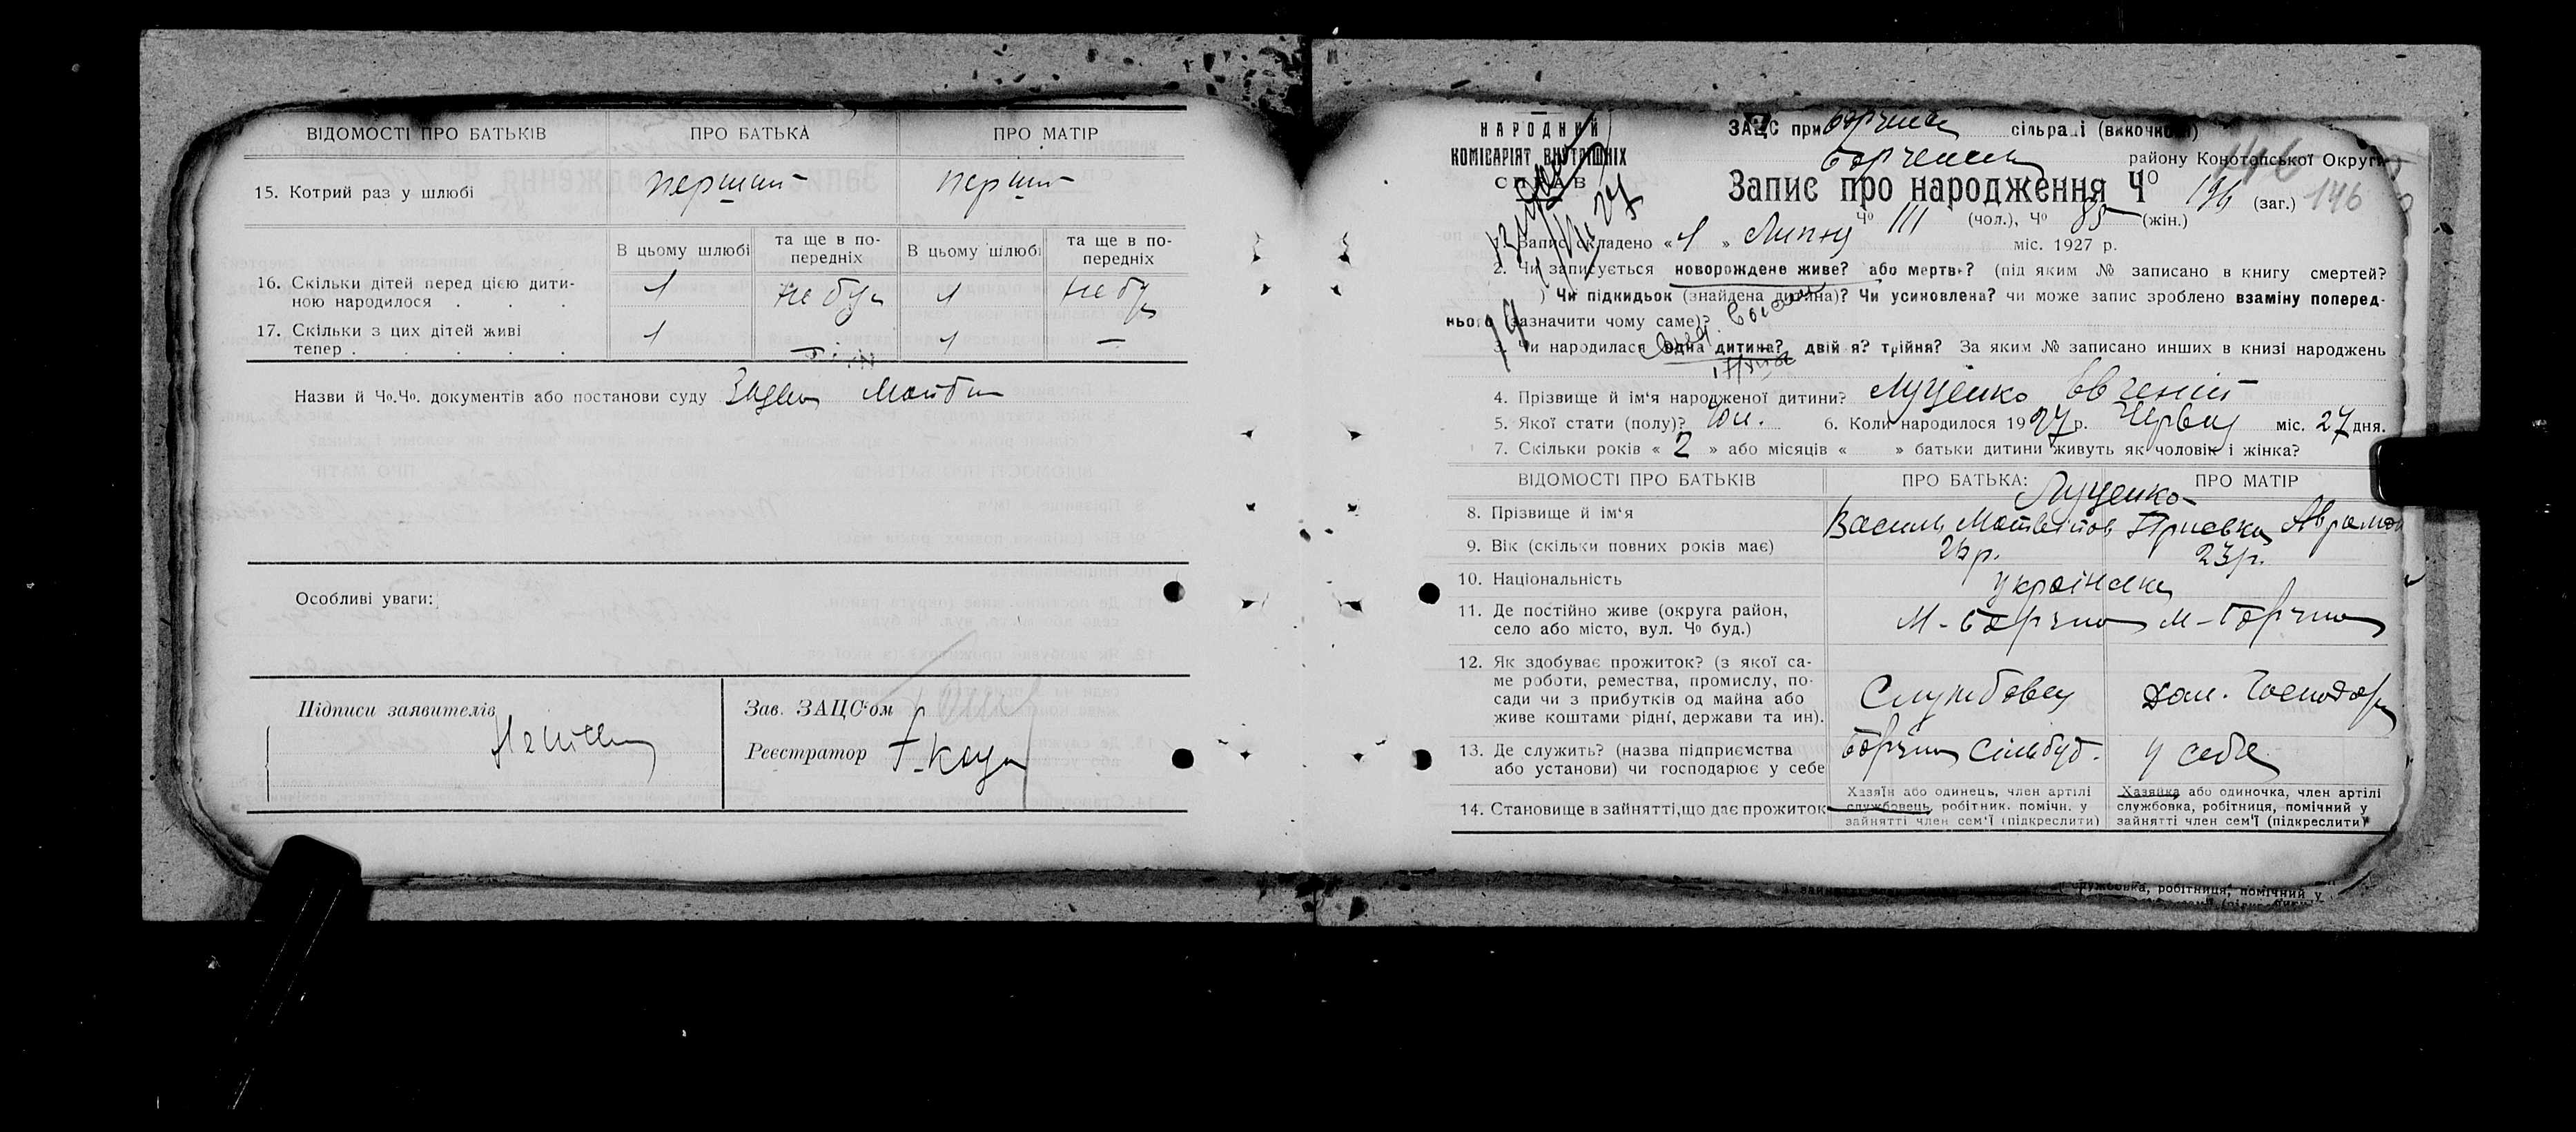 ВІДОМОСТІ ПРО БАТЬКІВ ПРО БАТЬКА ПРО МАТІР
15. Котрий раз у шлюбі перший перший
В цьому шлюбі та ще в по-передніх В цьому шлюбі та ще в по-передніх
16. Скільки дітей перед цією дити-
ною народилося . . . 1 не бул 1 не бул
17. Скільки з цих дітей живі
тепер . . . . . 1 — 1 —
Назви й Чо.Чо. документів або постанови суду
Особливі уваги:
Підписи заявителів
Зав. ЗАЦС‘ом
Реєстратор
НАРОДНИЙ
КОМІСАРІЯТ ВНУТРІШНІХ
СПРАВ
ЗАЦС при сільраді (виконкомі)
району Конотопської Округи
Запис про народження Чо 196 (заг.) 146
Чо 111 (чол.), Чо 85 (жін.)
1. Запис складено « 1 » Липня міс. 1927 р.
2. Чи записується новорождене живе? або мертве? (під яким № записано в книгу смертей?
) Чи підкидьок (знайдена дитина)? Чи усиновлена? чи може запис зроблено взаміну поперед-
нього (зазначити чому саме)?
3. Чи народилася одна дитина? двій я? трійня? За яким № записано инших в книзі народжень
4. Прізвище й ім‘я народженої дитини? Луценко Євгеній
5. Якої стати (полу)? чол. 6. Коли народилося 1927 р. Червня міс. 27 дня.
7. Скільки років « 2 » або місяців « » батьки дитини живуть як чоловік і жінка?
ВІДОМОСТІ ПРО БАТЬКІВ ПРО БАТЬКА: ПРО МАТІР
Луценко
8. Прізвище й ім‘я Василь Матвійов
9. Вік (скільки повних років має) 23 р.
10. Національність українська
11. Де постійно живе (округа район,
село або місто, вул. Чо буд.) М-Борзна М-Борзна
12. Як здобуває прожиток? (з якої са-
ме роботи, ремества, промислу, по-
сади чи з прибутків од майна або
живе коштами рідні, держави та ин). Службовец Дом. Господар
13. Де служить? (назва підприємства
або установи) чи господарює у себе Борзна Сільбуд. у себе
14. Становище в зайнятті, що дає прожиток
Хазяїн або одинець, член артілі
службовець, робітник. помічн. у
зайнятті член сем‘ї (підкреслити)
Хазяйка або одиночка, член артілі
службовка, робітниця, помічний у
зайнятті член сем‘ї (підкреслити)
службовка, робітниця, помічний у